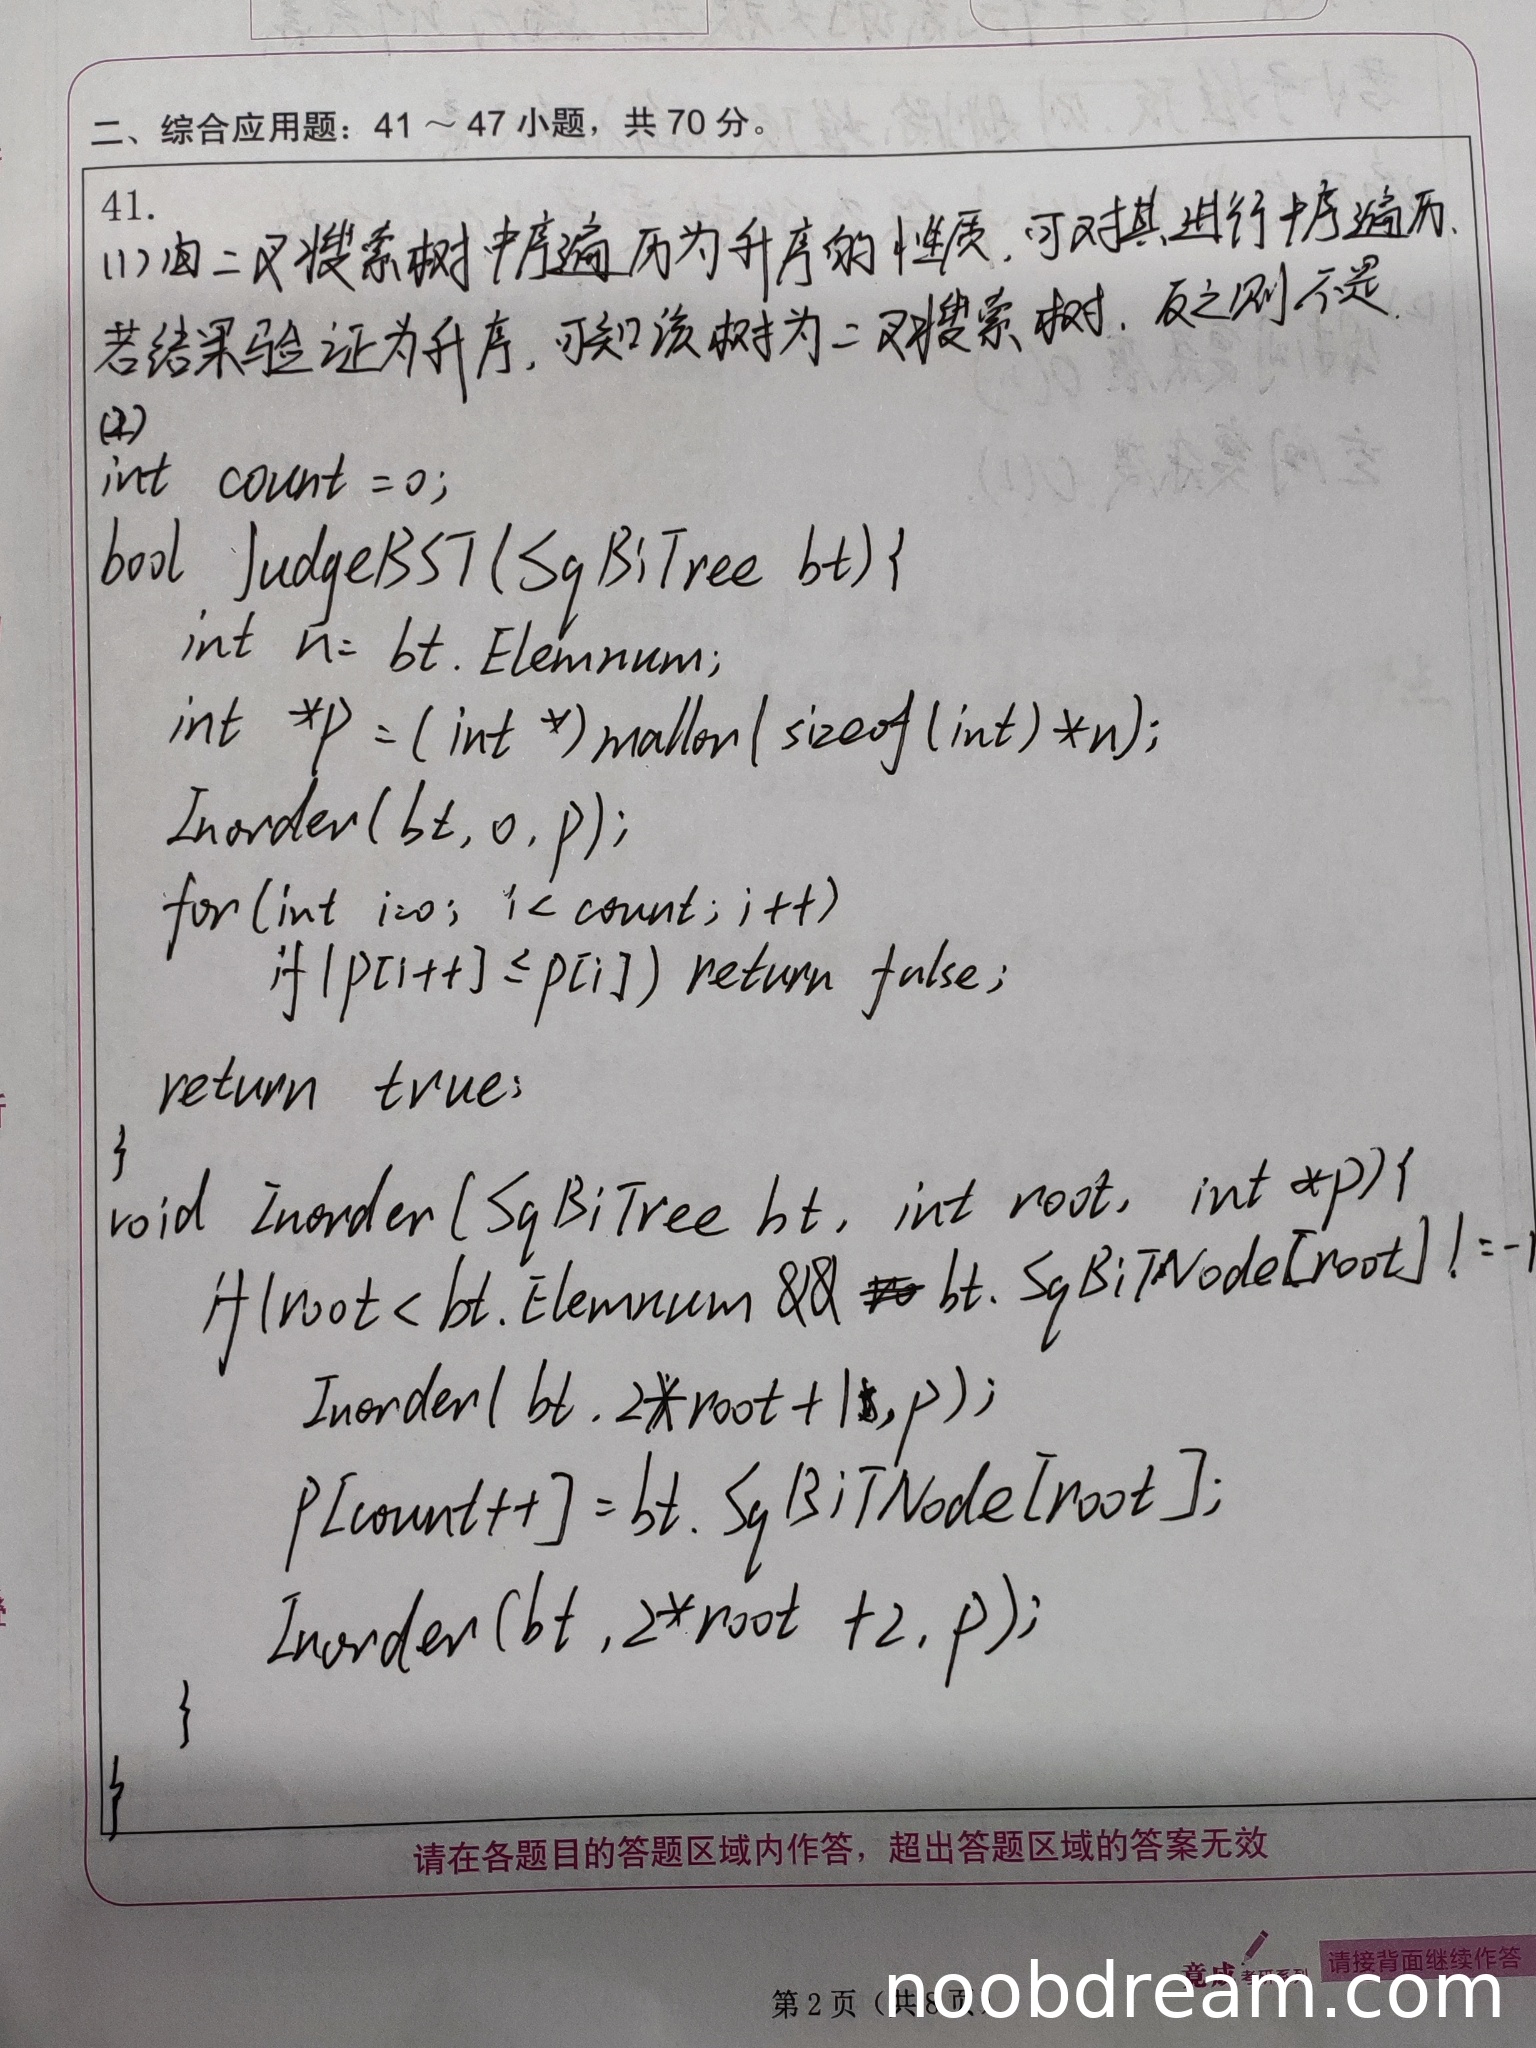 二、综合应用题：41～47 小题，共 70 分。
41.
(1)由二叉搜索树中序遍历为升序的性质，可对其进行中序遍历.
若结果验证为升序，可知该树为二叉搜索树，反之则不是.
(2)
int count =0;
bool JudgeBST(SqBiTree bt){
int n= bt.Elemnum;
int *p =(int *)malloc(sizeof(int)*n);
Inorder(bt,0,p);
for(int i=0; i<count; i++)
if(p[i++]≤p[i]) return false;
return true;
}
void Inorder(SqBiTree bt, int root, int *p){
if(root<bt.Elemnum && bt.SqBiTNode[root]!=-1
Inorder(bt,2*root+1,p);
p[count++]=bt.SqBiTNode[root];
Inorder(bt,2*root +2,p);
}
}
请在各题目的答题区域内作答，超出答题区域的答案无效
竟成 考研系列 请接背面继续作答
第 2 页（共 8 页）
noobdream.com